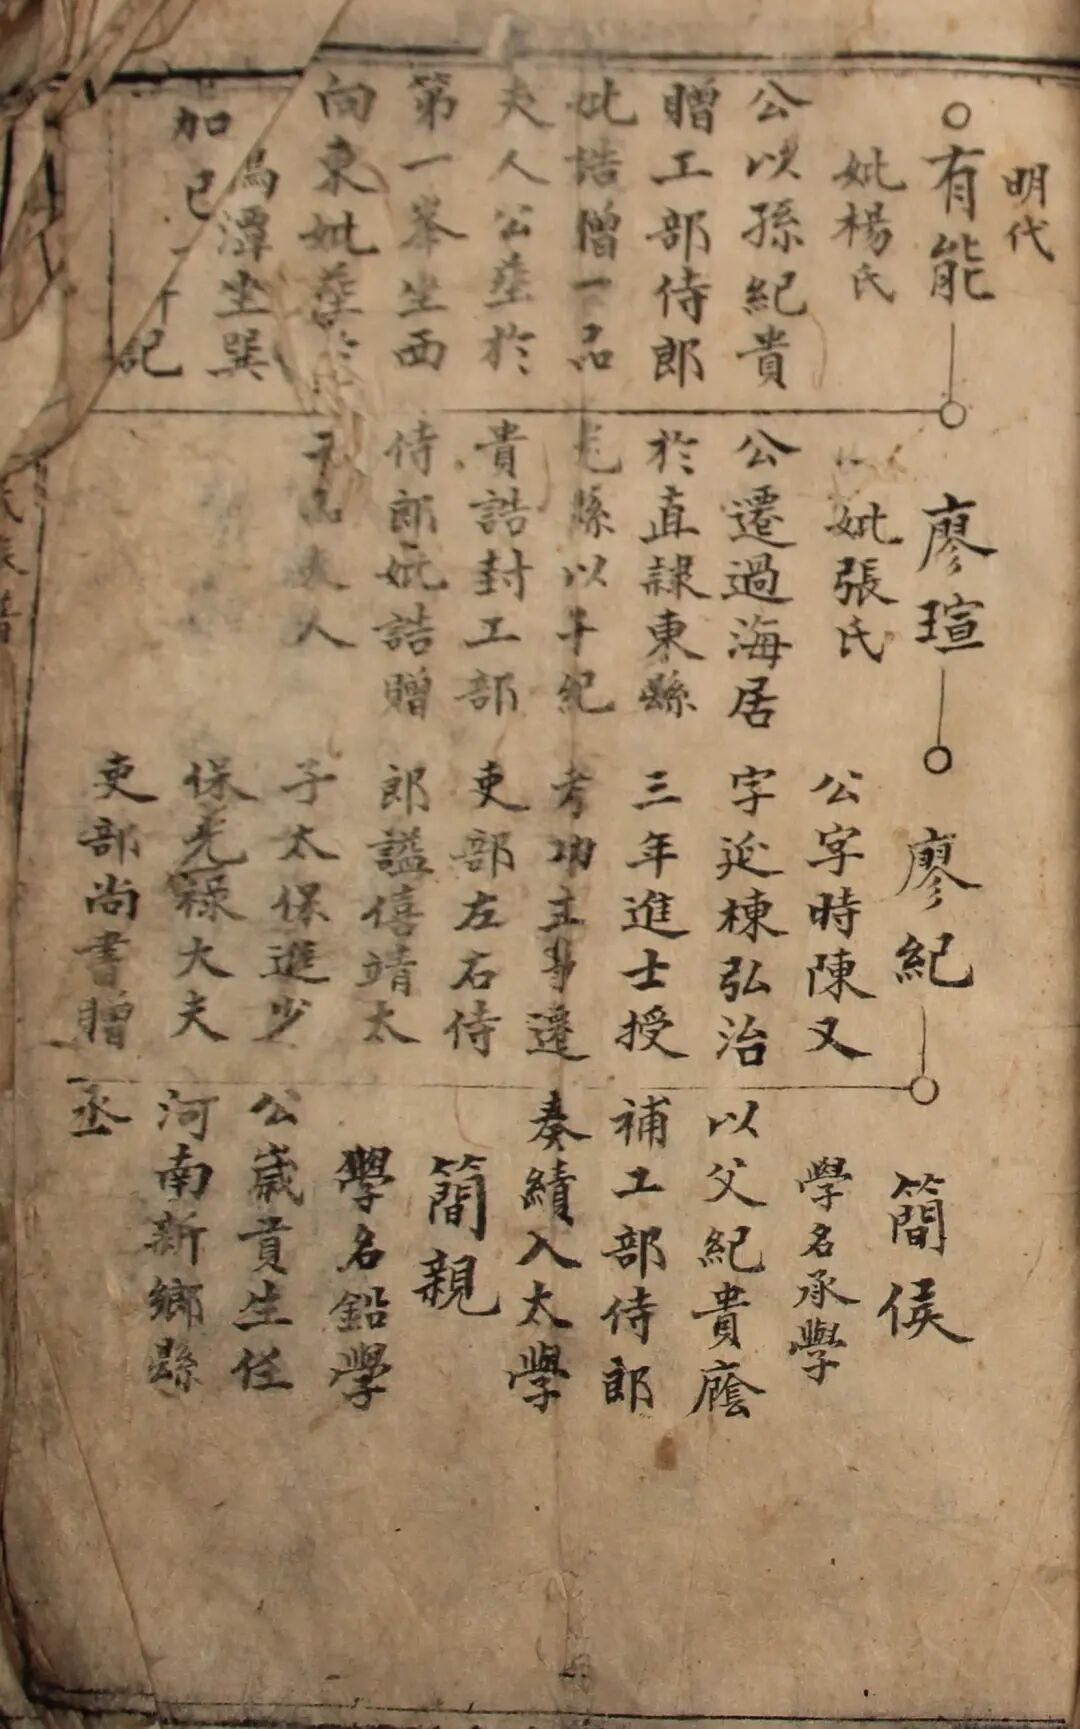 明代
有能
妣楊氏
公以孫紀貴
贈工部侍郎
妣誥贈一品
夫人公塟於
第一峯坐西
向東妣塟於
潭坐巽
加已
記
廖瑄
妣張氏
公遷過海居
於直隸東縣
縣以子紀
貴誥封工部
侍郎妣誥贈
夫人
廖紀
公字時陳又
字延棟弘治
三年進士授
考功主事遷
吏部左右侍
郎謚僖靖太
子太保進少
保光祿大夫
吏部尚書贈
簡侯
學名承學
以父紀貴廕
補工部侍郎
奏績入太學
簡親
學名鉛學
公歲貢生任
河南新鄉縣
丞